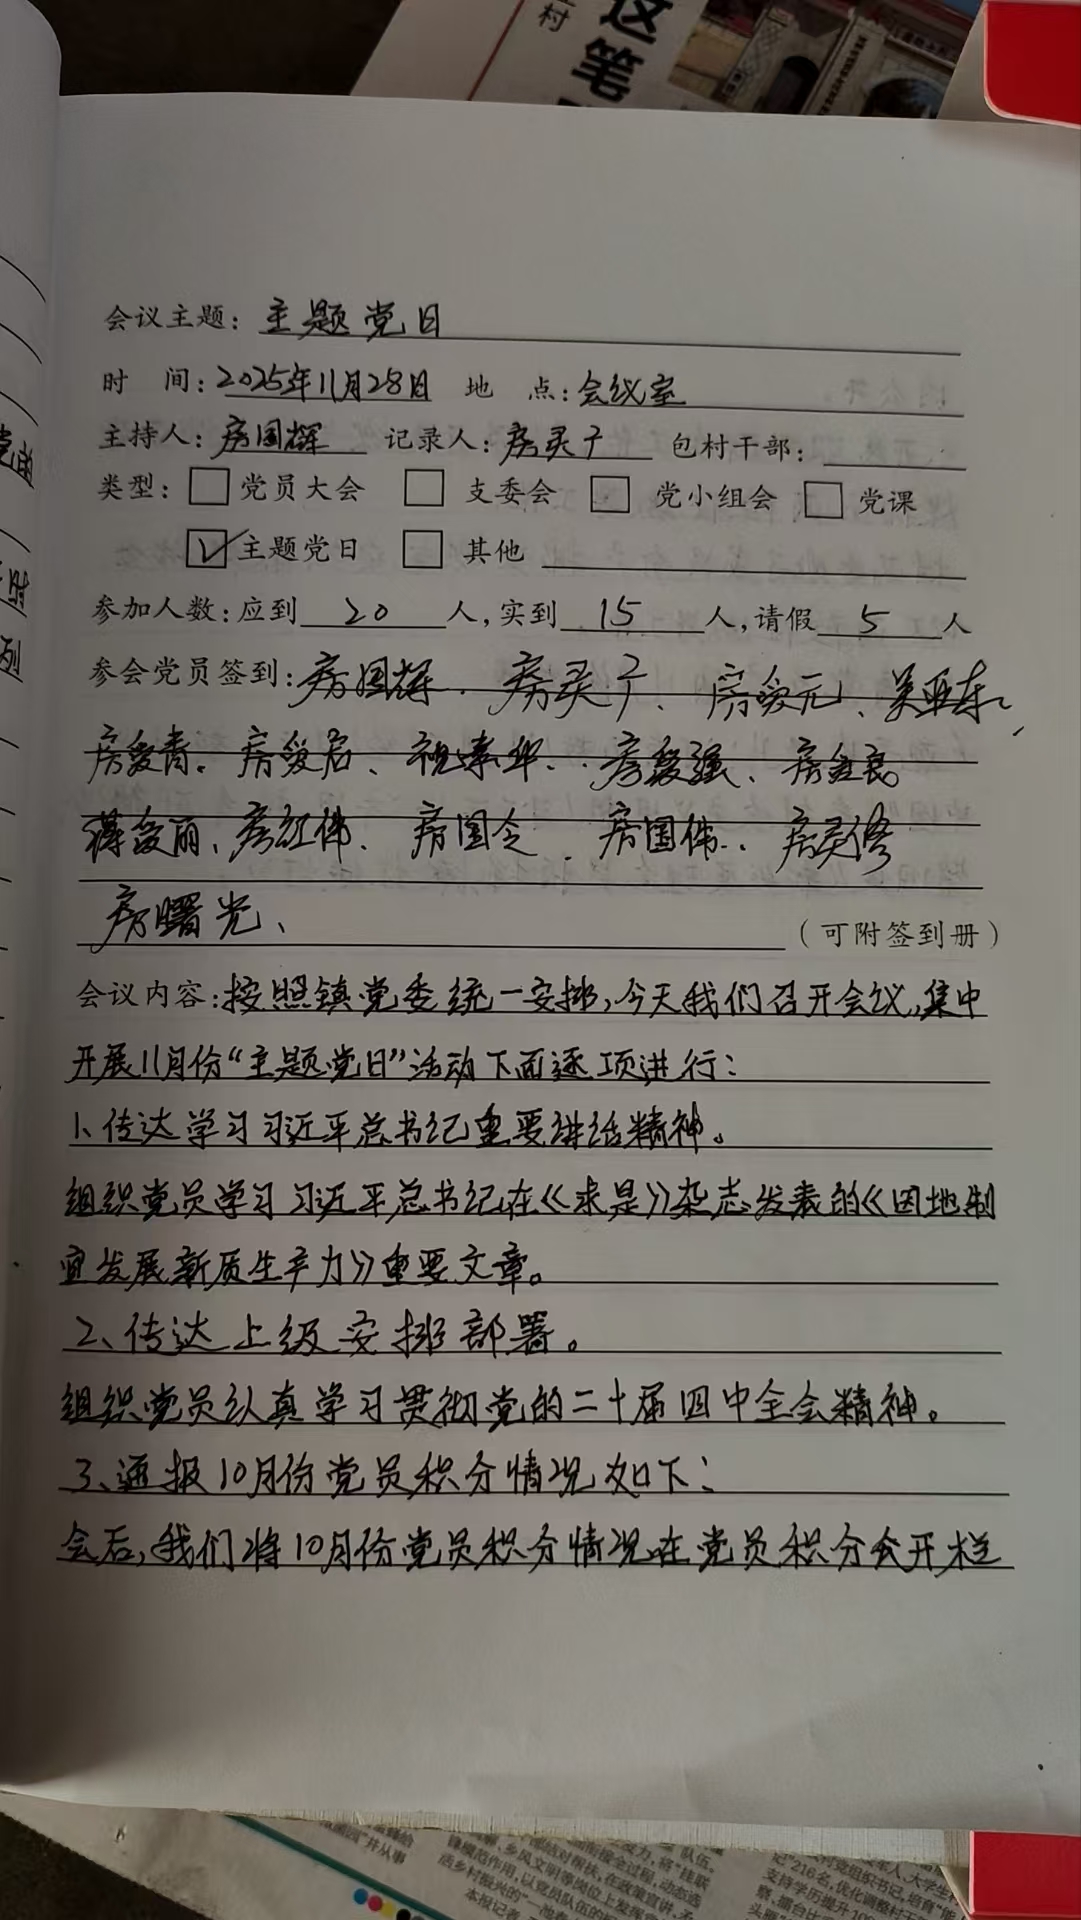 村
这
笔
会议主题：主题党日
时 间：2025年11月28日 地 点：会议室
主持人：房国辉 记录人：房灵子 包村干部：
类型：□党员大会 □支委会 □党小组会 □党课
☑主题党日 □其他
参加人数：应到 20 人，实到 15 人，请假 5 人
参会党员签到：房国辉、房灵子、房爱元、吴亚东、
房爱青、房爱启、祝素华、房爱强、房金良
蒋爱丽、房红伟、房国令、房国伟、房灵修
房曙光、
（可附签到册）
会议内容：按照镇党委统一安排，今天我们召开会议，集中
开展11月份“主题党日”活动下面逐项进行：
1、传达学习习近平总书记重要讲话精神。
组织党员学习习近平总书记在《求是》杂志发表的《因地制
宜发展新质生产力》重要文章。
2、传达上级安排部署。
组织党员认真学习贯彻党的二十届四中全会精神。
3、通报10月份党员积分情况如下：
会后，我们将10月份党员积分情况在党员积分公开栏